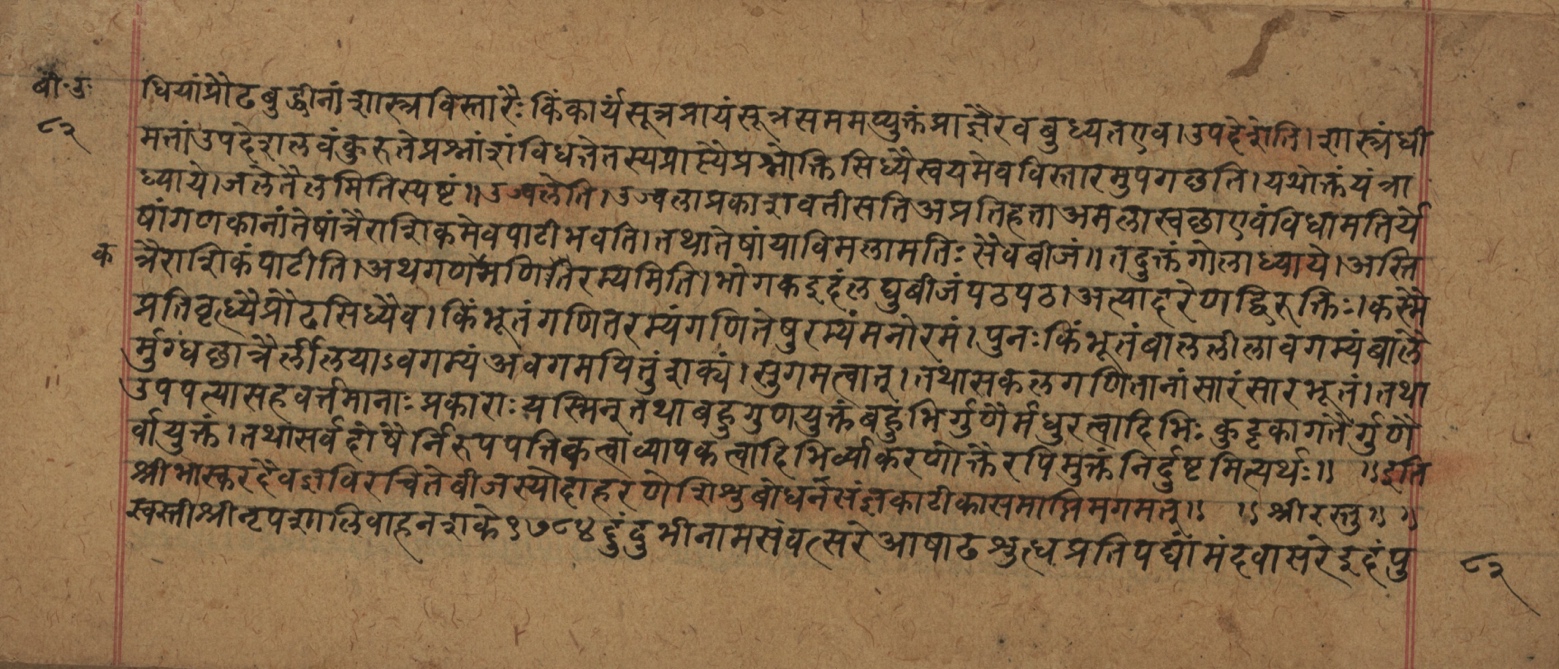 बी.उ.
धियांप्रौढबुद्धीनांशास्त्रविस्तारैः किंकार्यंसूत्रप्रायंसूत्रसममप्युक्तंप्राज्ञैरवबुध्यतएव।उपदेशेति।शास्त्रंधी
८२
मत्तांउपदेशलवंकुरुतेप्रश्नांशंविधत्तेतस्यप्राप्त्यैप्रश्नोक्तिसिध्यैस्वयमेवविस्तारमुपगछति।यथोक्तंयंत्रा
ध्याये।जलेतैलमितिस्पष्टं॥उज्वलेति।उज्वलाप्रकाशवतीसतिअप्रतिहताअमलास्वछाएवंविधामतिर्ये
षांगणकानांतेषांत्रैराशिकमेवपाटीभवति।तथातेषांयाविमलामतिः सैवबीजं॥तदुक्तंगोलाध्याये।अस्ति
क
त्रैराशिकंपाटीति।अथगणमणितिरम्यमिति।भोगकइदंलघुबीजंपठपठ।अत्यादरेणद्विरुक्तिः।कस्मै
प्रतिवृध्यैप्रौढसिध्यैव।किंभूतंगणितरम्यंगणितेषुरम्यंमनोरमं।पुनःकिंभूतंबाललीलावगम्यंबालै
र्मुग्धछात्रैर्लीलयाऽवगम्यंअवगमयितुंशक्यं।सुगमत्वात्।तथासकलगणितानांसारंसारभूतं।तथा
उपपत्यासहवर्त्तमानाःप्रकाराःयस्मिन्तथाबहुगुणयुक्तंबहुभिर्गुणैर्मधुरत्वादिभिः कुट्टकागतैर्गुणै
र्वायुक्तं।तथासर्वदोषैर्निरुपपत्तिकत्वाव्यापकत्वादिभिर्व्याकरणोक्तैरपिमुक्तंनिर्दुष्टमित्यर्थः॥ ॥इति
श्रीभास्करदैवज्ञविरचितेबीजस्योदाहरणेशिशुबोधनसंज्ञकाटीकासमाप्तिमगमत्॥ ॥श्रीरस्तु॥ ॥
स्वस्तीश्रीनृपशालिवाहनशके१७८४दुंदुभीनामसंवत्सरेआषाढशुत्धप्रतिपद्यांमंदवासरेइदंपु
८२